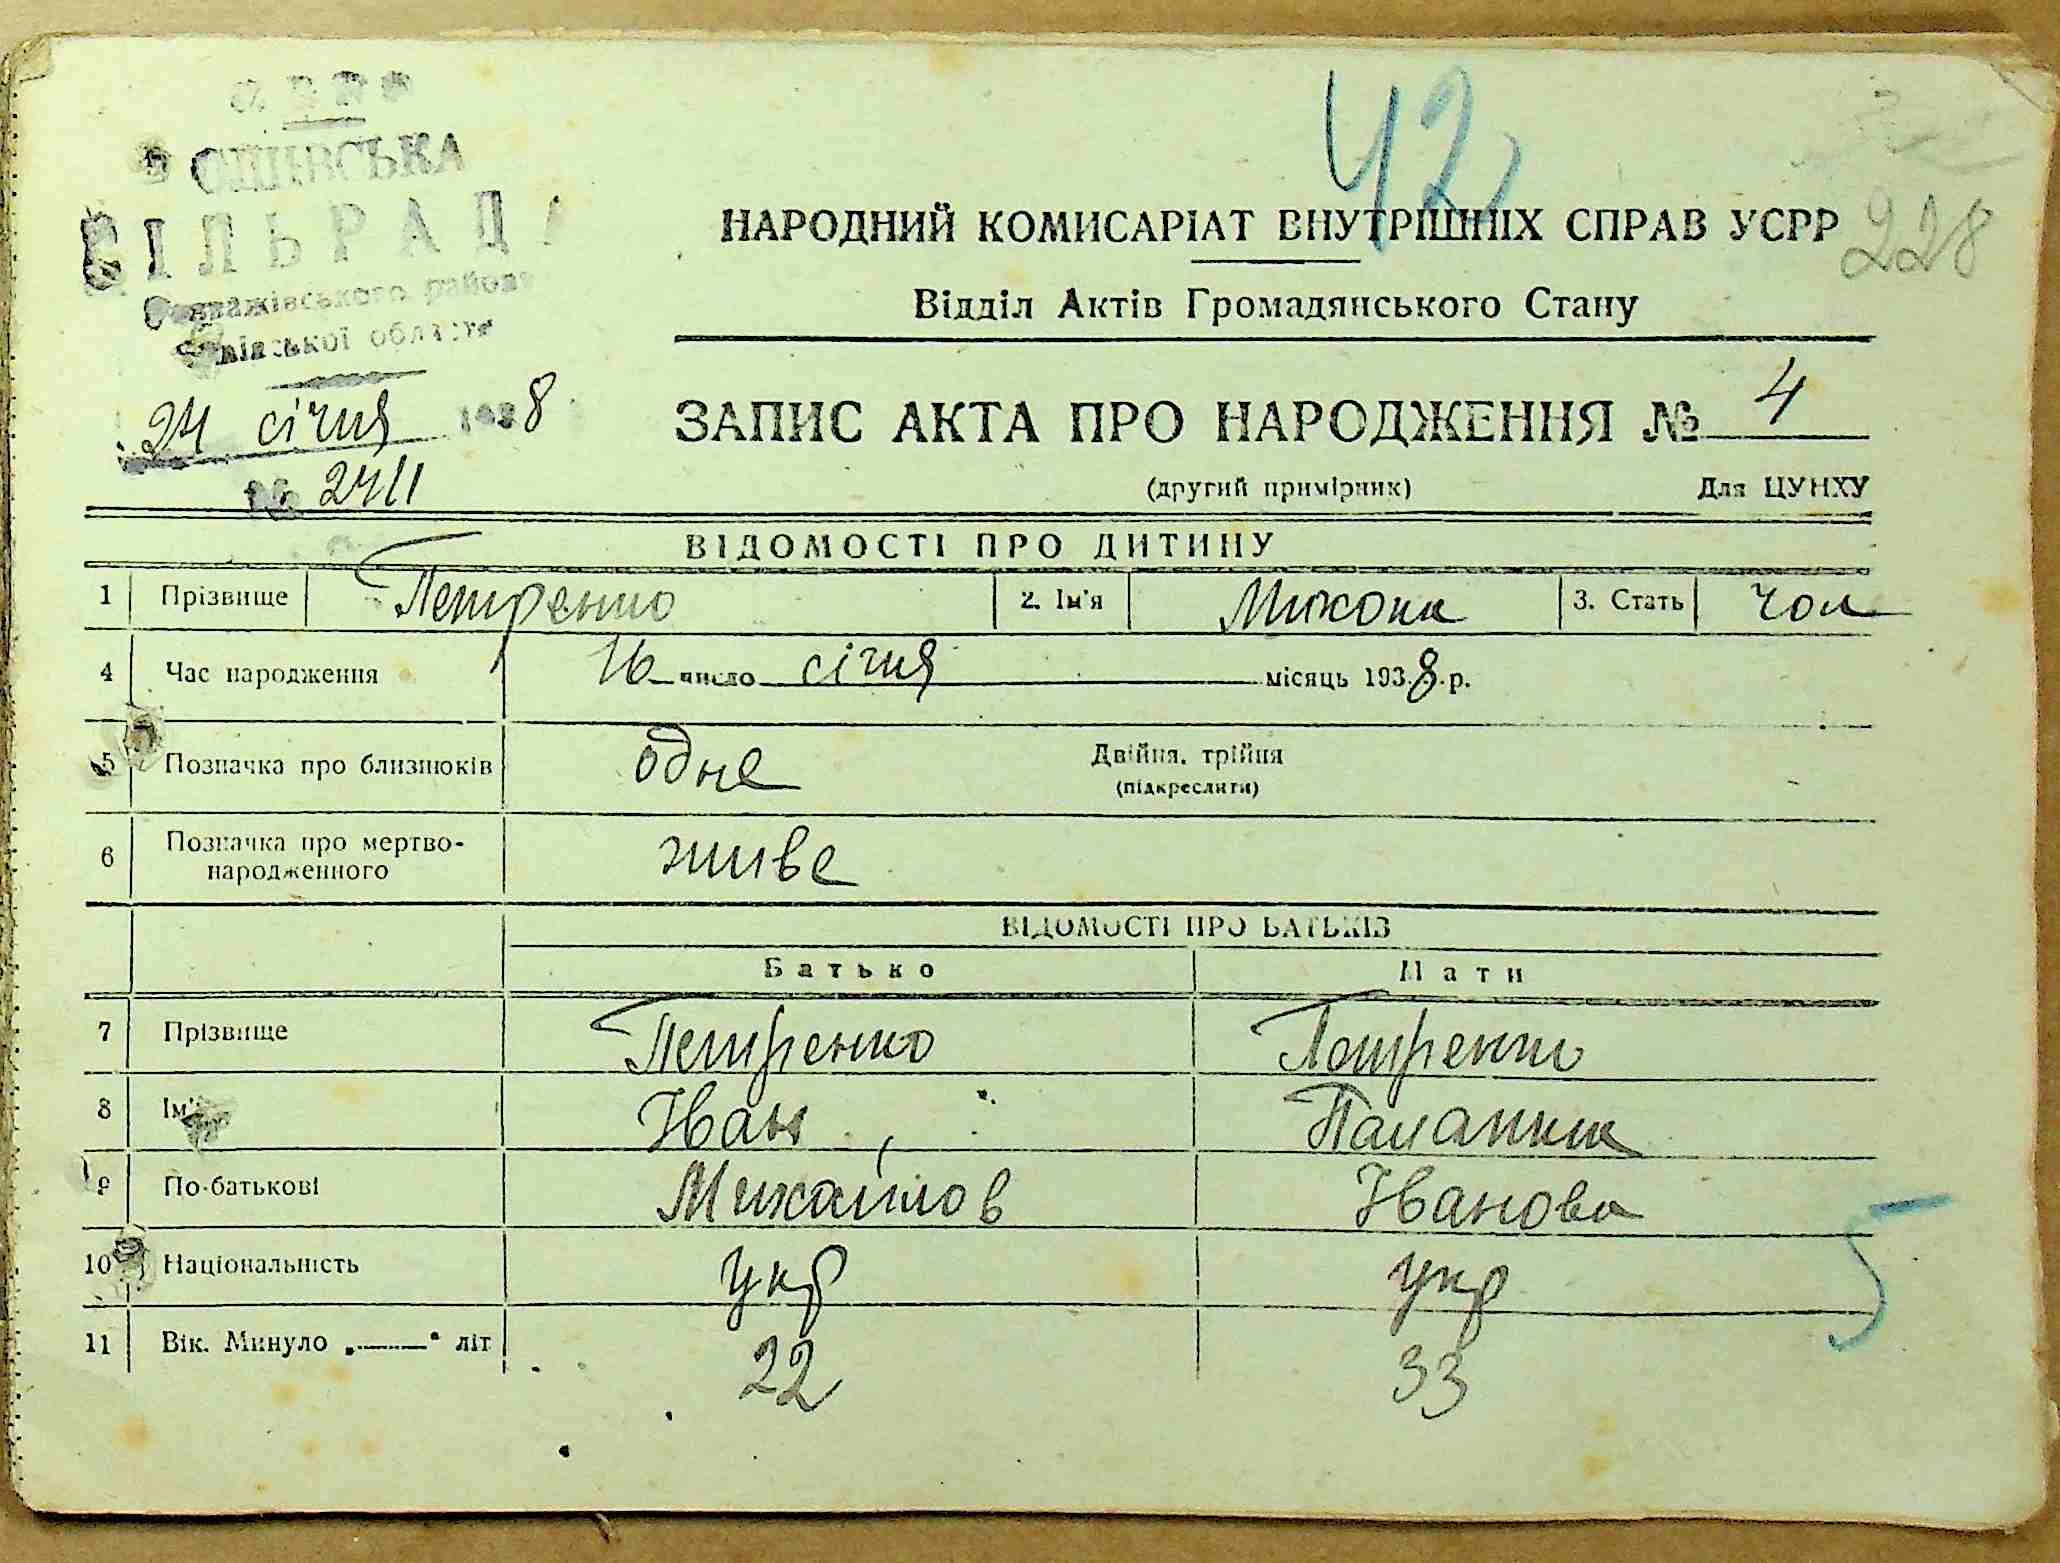 УСРР
СІЛЬРАДА
району
області
24 січня 1938
№ 24/1
42
228
НАРОДНИЙ КОМИСАРІАТ ВНУТРІШНІХ СПРАВ УСРР
Відділ Актів Громадянського Стану
ЗАПИС АКТА ПРО НАРОДЖЕННЯ № 4
(другий примірник) Для ЦУНХУ
ВІДОМОСТІ ПРО ДИТИНУ
1 Прізвище Петренко 2. Ім'я Микола 3. Стать чол
4 Час народження 16 число січня місяць 1938 р.
5 Позначка про близнюків одне Двійня, трійня
(підкреслити)
6 Позначка про мертво-
народженного живе
ВІДОМОСТІ ПРО БАТЬКІВ
Батько Мати
7 Прізвище Петренко Петренко
8 Ім'я Іван Палажка
9 По-батькові Михайлов Іванова
10 Національність укр укр
5
11 Вік. Минуло „——" літ 22 33